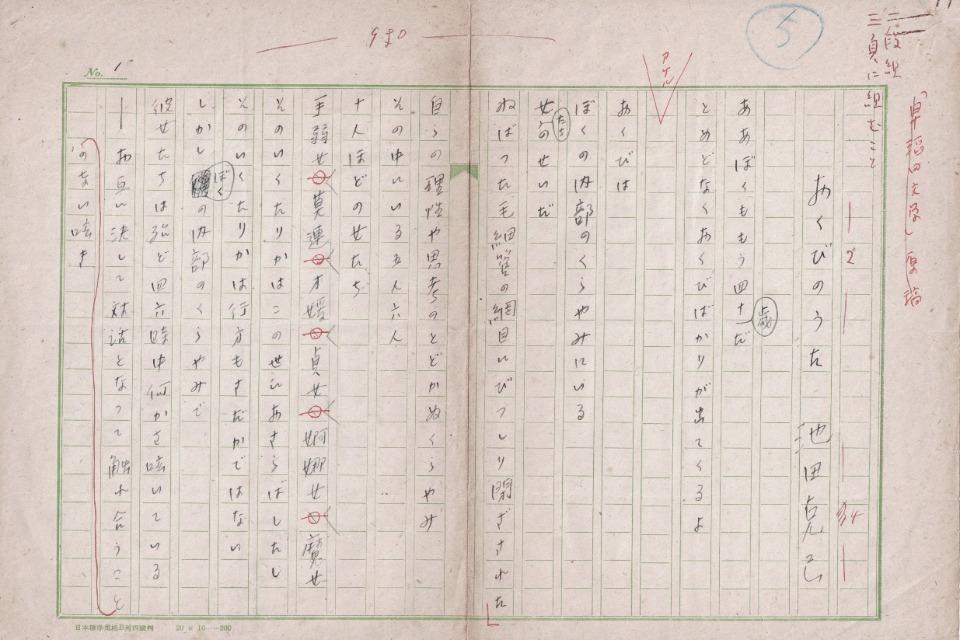 5
二段組
三頁に組むこと
「早稲田文学」原稿
No. 1
2
アケル
あくびのうた
池田克己
ああぼくももう四十歳だ
とめどなくあくびばかりが出てくるよ
あくびは
ぼくの内部のくらやみにいる
女たちのせいだ
ねばつた毛細管の網目にびつしり閉ざされた
自らの理性や思考のとどかぬくらやみ
その中にいる五人六人
十人ほどの女たち
手弱女 莫連 才媛 貞女 婀娜女 魔女
そのいくたりかはこの世にあさらばしたし
そのいくたりかは行方もさだかではない
しかしぼくの内部のくらやみで
彼女たちは殆ど四六時中何かを呟いている
―お互い決して対話となつて触れ合うこと
のない呟き
日本標準規格B列四號判 20×10―200